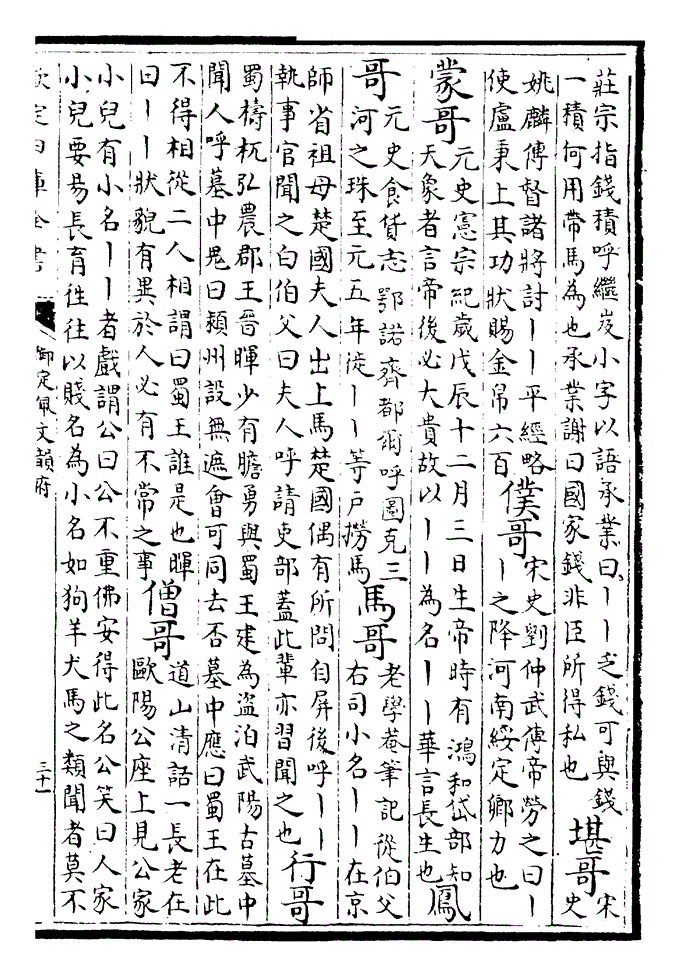 莊宗指錢積呼繼岌小字以語承業曰丨丨乏錢可與錢
一積何用帶馬為也承業謝曰國家錢非臣所得私也
堪哥
宋
史
姚麟傳督諸將討丨丨平經略
使盧秉上其功狀賜金帛六百
僕哥
宋史劉仲武傳帝勞之曰丨
丨之降河南綏定卿力也
蒙哥
元史憲宗紀歲戊辰十二月三日生帝時有鴻和岱部知
天象者言帝後必大貴故以丨丨為名丨丨華言長生也
鳳
哥
元史食貨志鄂諾齊都爾呼圖克三
河之珠至元五年徙丨丨等戶撈焉
馬哥
老學菴筆記從伯父
右司小名丨丨在京
師省祖母楚國夫人出上馬楚國偶有所問自屏後呼丨丨
執事官聞之白伯父曰夫人呼請吏部蓋此輩亦習聞之也
行哥
蜀檮杌弘農郡王晉暉少有膽勇與蜀王建為盜泊武陽古墓中
聞人呼墓中鬼曰潁州設無遮會可同去否墓中應曰蜀王在此
不得相從二人相謂曰蜀王誰是也暉
曰丨丨狀貌有異於人必有不常之事
僧哥
道山清話一長老在
歐陽公座上見公家
小兒有小名丨丨者戲謂公曰公不重佛安得此名公笑曰人家
小兒要易長育徃徃以賤名為小名如狗羊犬馬之類聞者莫不
欽定四庫全書
御定佩文韻府